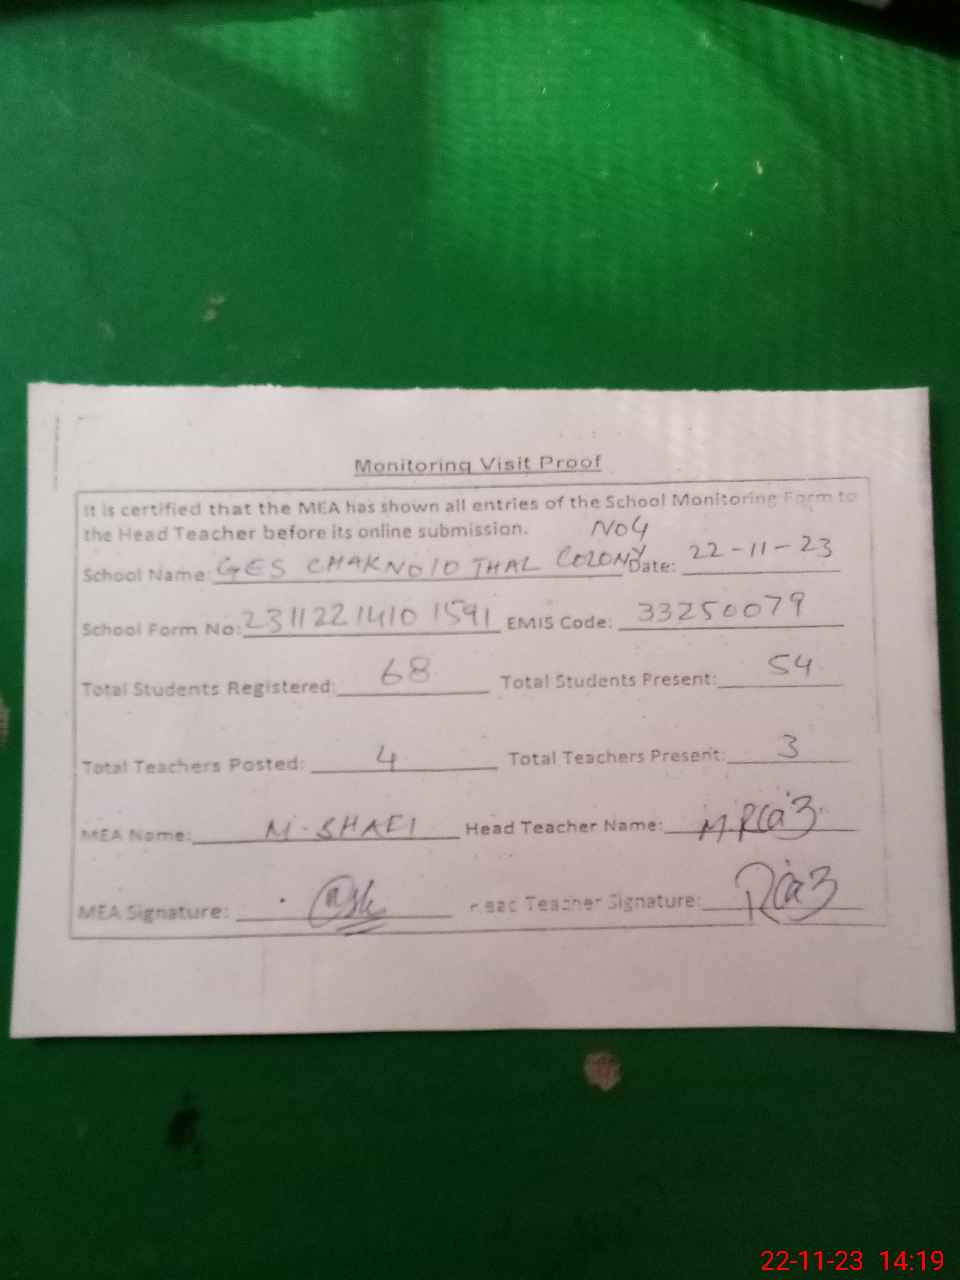 Monitoring Visit Proof
It is certified that the MEA has shown all entries of the School Monitoring Form to
the Head Teacher before its online submission.
No4
School Name: GES CHAKNO10 THAL COLONY Date: 22-11-23
School Form No: 2311221410 1591 EMIS Code: 33250079
Total Students Registered: 68 Total Students Present: 54
Total Teachers Posted: 4 Total Teachers Present: 3
MEA Name: M-SHAFI Head Teacher Name: M.Riaz
MEA Signature: Head Teacher Signature: Riaz
22-11-23 14:19